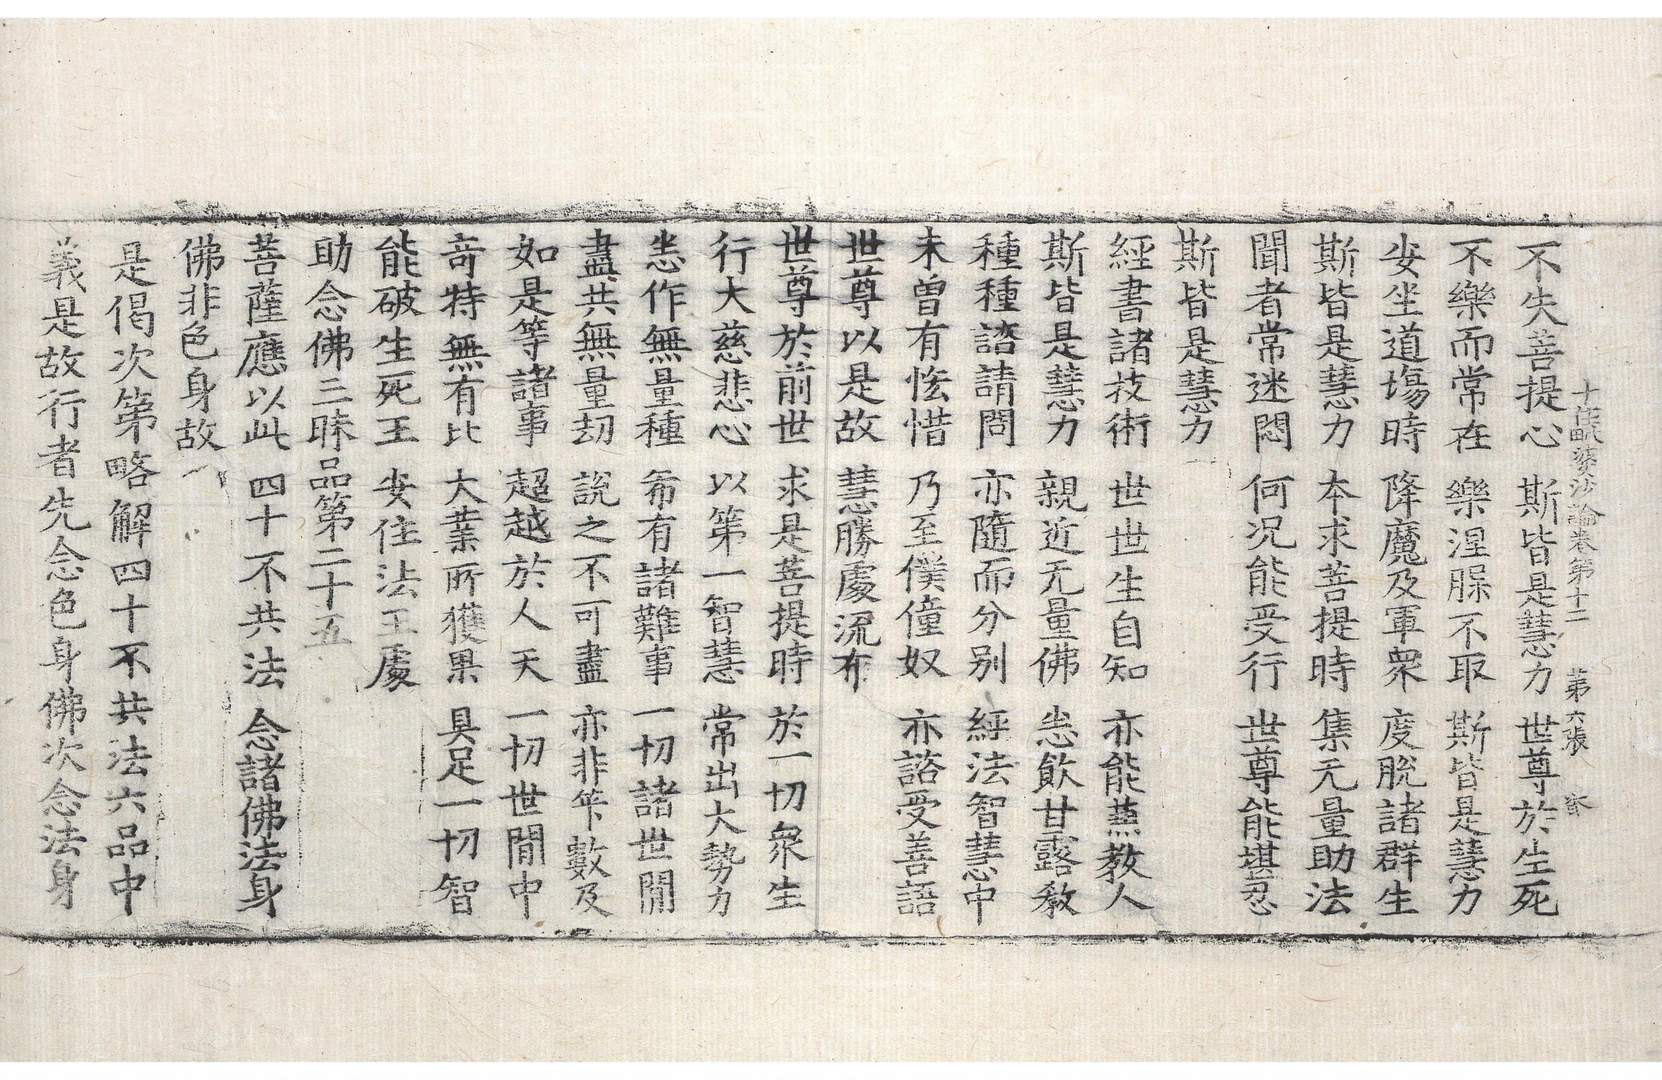 十住毗婆沙論卷第十二 第六張
不失菩提心 斯皆是慧力 世尊於生死
不樂而常在 樂涅槃不取 斯皆是慧力
安坐道場時 降魔及軍衆 度脫諸群生
斯皆是慧力 本求菩提時 集无量助法
聞者常迷悶 何况能受行 世尊能堪忍
斯皆是慧力
經書諸技術 世世生自知 亦能蒸教人
斯皆是慧力 親近无量佛 悉飮甘露教
種種諮請問 亦隨而分別 經法智慧中
未曾有悋惜 乃至僕僮奴 亦諮受善語
世尊以是故 慧勝處流布
世尊於前世 求是菩提時 於一切衆生
行大慈悲心 以第一智慧 常出大勢力
悉作無量種 希有諸難事 一切諸世閒
盡共無量劫 說之不可盡 亦非筭數及
如是等諸事 超越於人天 一切世閒中
奇特無有比 大業所獲果 具足一切智
能破生死王 安住法王處
助念佛三昧品第二十五
菩薩應以此 四十不共法 念諸佛法身
佛非色身故
是偈次第略解四十不共法六品中
義是故行者先念色身佛次念法身